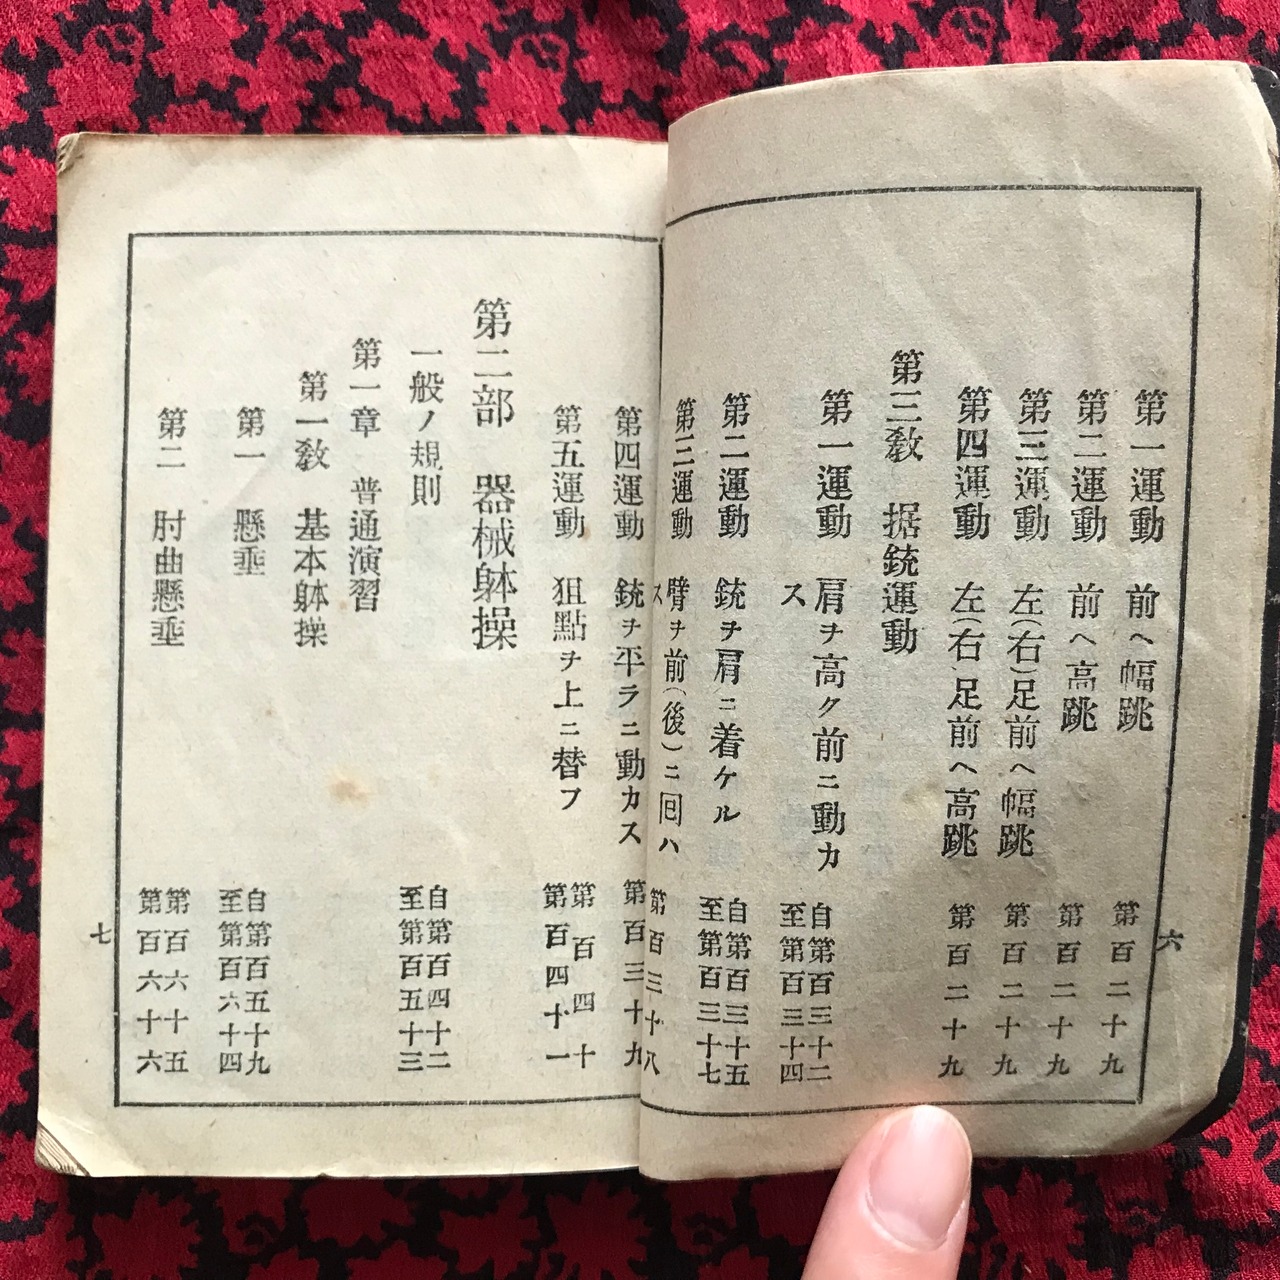 第一運動 前ヘ幅跳 第百二十九
第二運動 前ヘ高跳 第百二十九
第三運動 左(右)足前ヘ幅跳 第百二十九
第四運動 左(右)足前ヘ高跳 第百二十九
第三敎 据銃運動
第一運動 肩ヲ高ク前ニ動カ
ス
自第百三十二
至第百三十四
第二運動 銃ヲ肩ニ着ケル
自第百三十五
至第百三十七
第三運動 臂ヲ前(後)ニ囘ハ
ス
第百三十八
六
第四運動 銃ヲ平ラニ動カス 第百三十九
第五運動 狙點ヲ上ニ替フ
第百四十
第百四十一
第二部 器械躰操
一般ノ規則
自第百四十二
至第百五十三
第一章 普通演習
第一敎 基本躰操
第一 懸垂
自第百五十九
至第百六十四
第二 肘曲懸垂
第百六十五
第百六十六
七